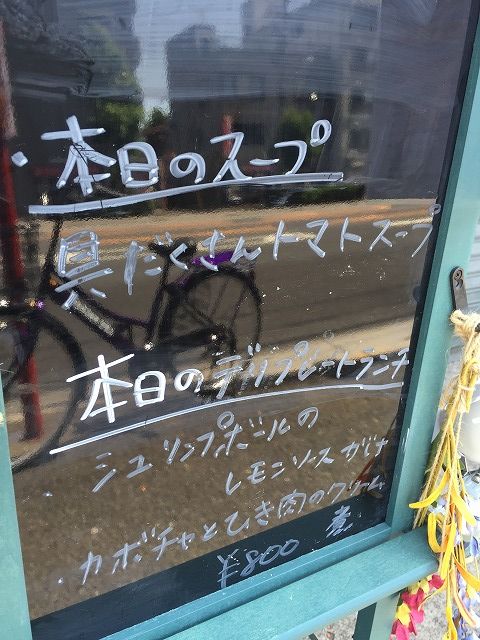 ・本日のスープ
具だくさんトマトスープ
本日のデリプレートランチ
シュリンプボールの
レモンソースがけ
・カボチャとひき肉のクリーム
煮
¥800